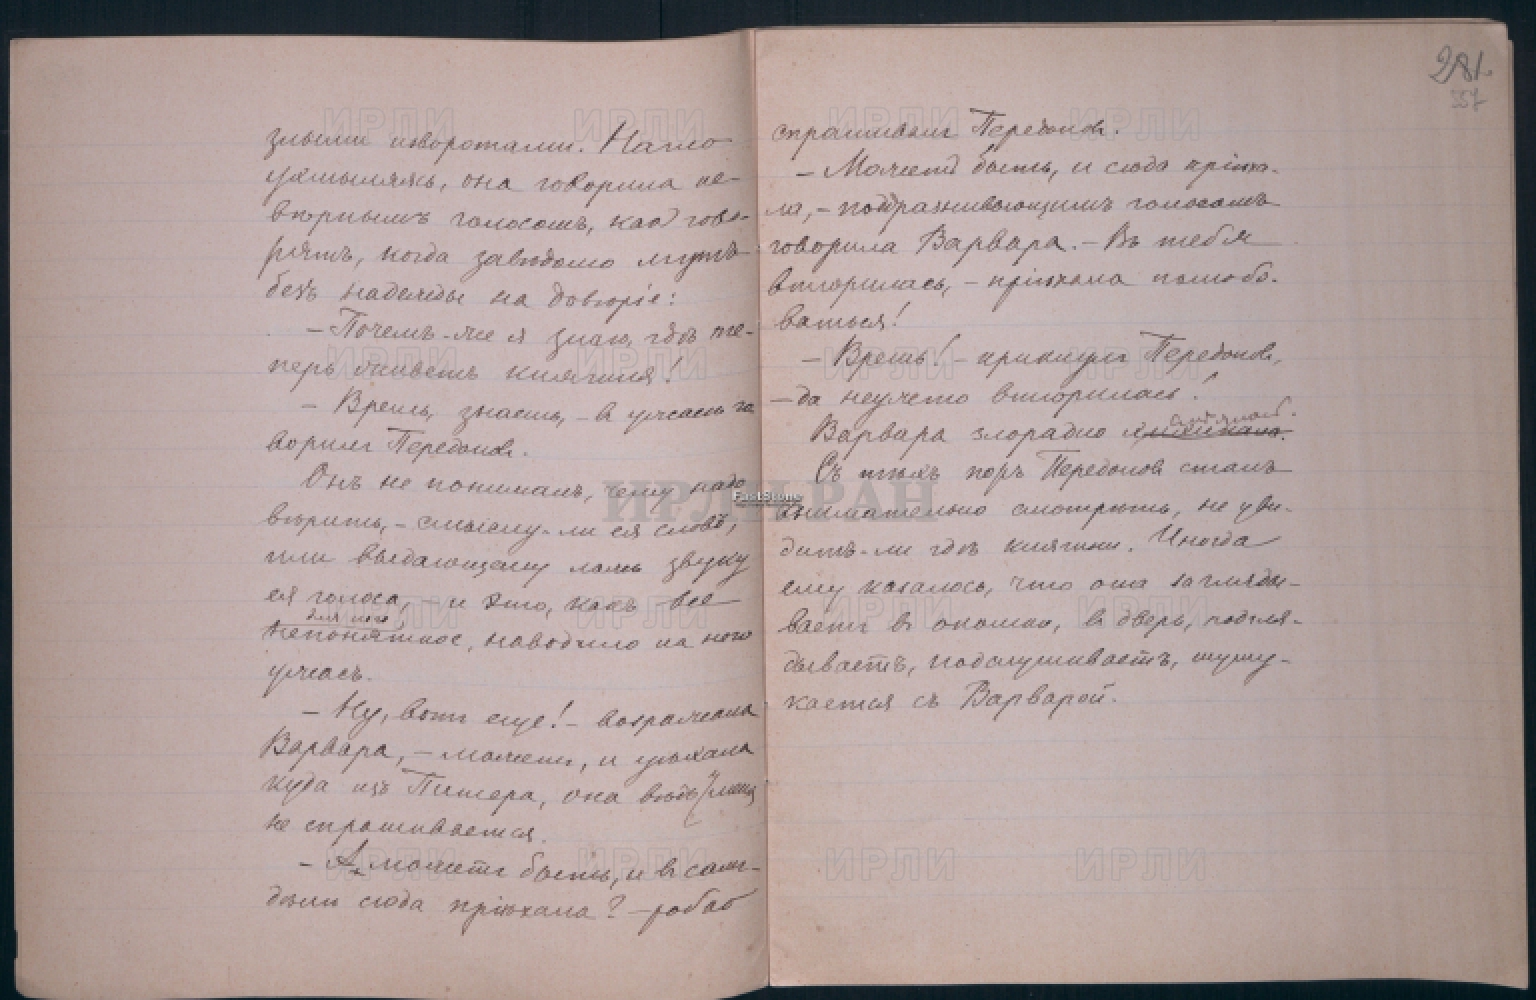 зными изворотами. Нагло
ухмыляясь, она говорила не-
вѣрнымъ голосомъ, как гово-
рятъ, когда завѣдомо лгутъ
безъ надежды на довѣріе:
– Почемъ-же я знаю, гдѣ те-
перь живетъ княгиня!
– Врешь, знаешь, – в ужасѣ го
ворилъ Передонов.
Онъ не понималъ, чему надо
вѣрить, – смыслу-ли ея словъ,
или выдающему ложь звуку
ея голоса, – и это, какъ все
для него
непонятное, наводило на него
ужасъ.
– Ну, вотъ еще! – возражала
Варвара, – можетъ, и уѣхала
куда изъ Питера, она вѣдь у меня
не спрашивается.
– А можетъ быть, и в самъ-
дѣлѣ сюда пріѣхала? – робко
281.
357
спрашивалъ Передонов.
– Можетъ быть, и сюда пріѣха-
ла, – поддразнивающимъ голосомъ
говорила Варвара. – Въ тебя
втюрилась, – пріѣхала полюбо-
ваться!
– Врешь! – крикнулъ Передонов,
– да неужто втюрилась!
Варвара злорадно
смѣялась.
Съ тѣхъ поръ Передонов сталъ
внимательно смотрѣть, не уви-
дитъ-ли гдѣ княгини. Иногда
ему казалось, что она загляды-
ваетъ в окошко, в дверь, подгля-
дываетъ, подслушиваетъ, шушу-
кается съ Варварой.
ИРЛИ РАН
FastStone
ИРЛИ